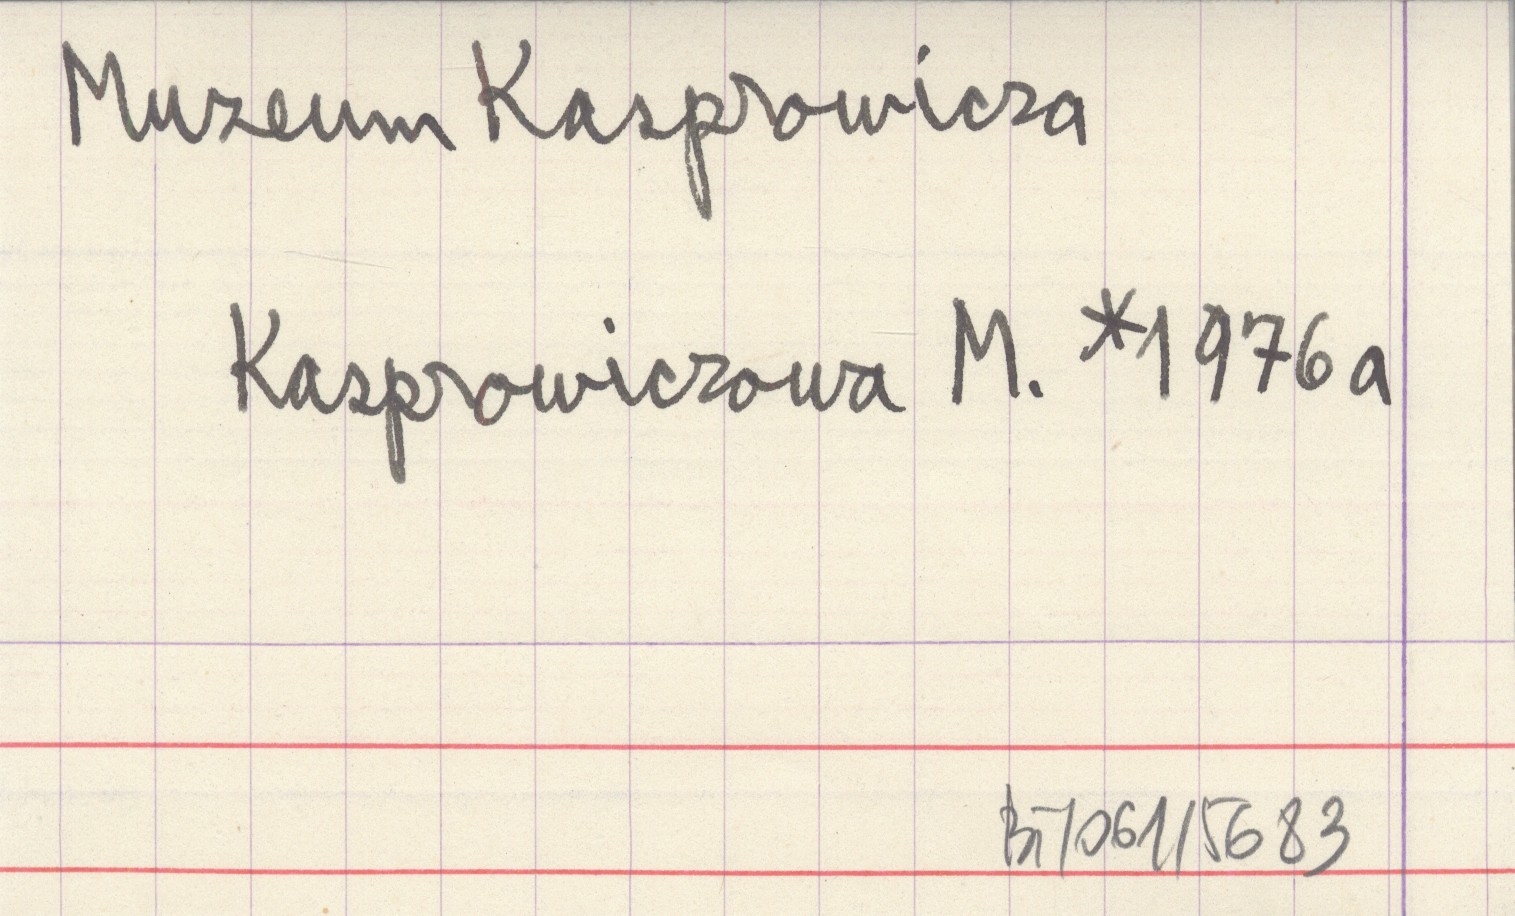 Muzeum Kasprowicza
Kasprowiczowa M. *1976a
Bi/061/5683